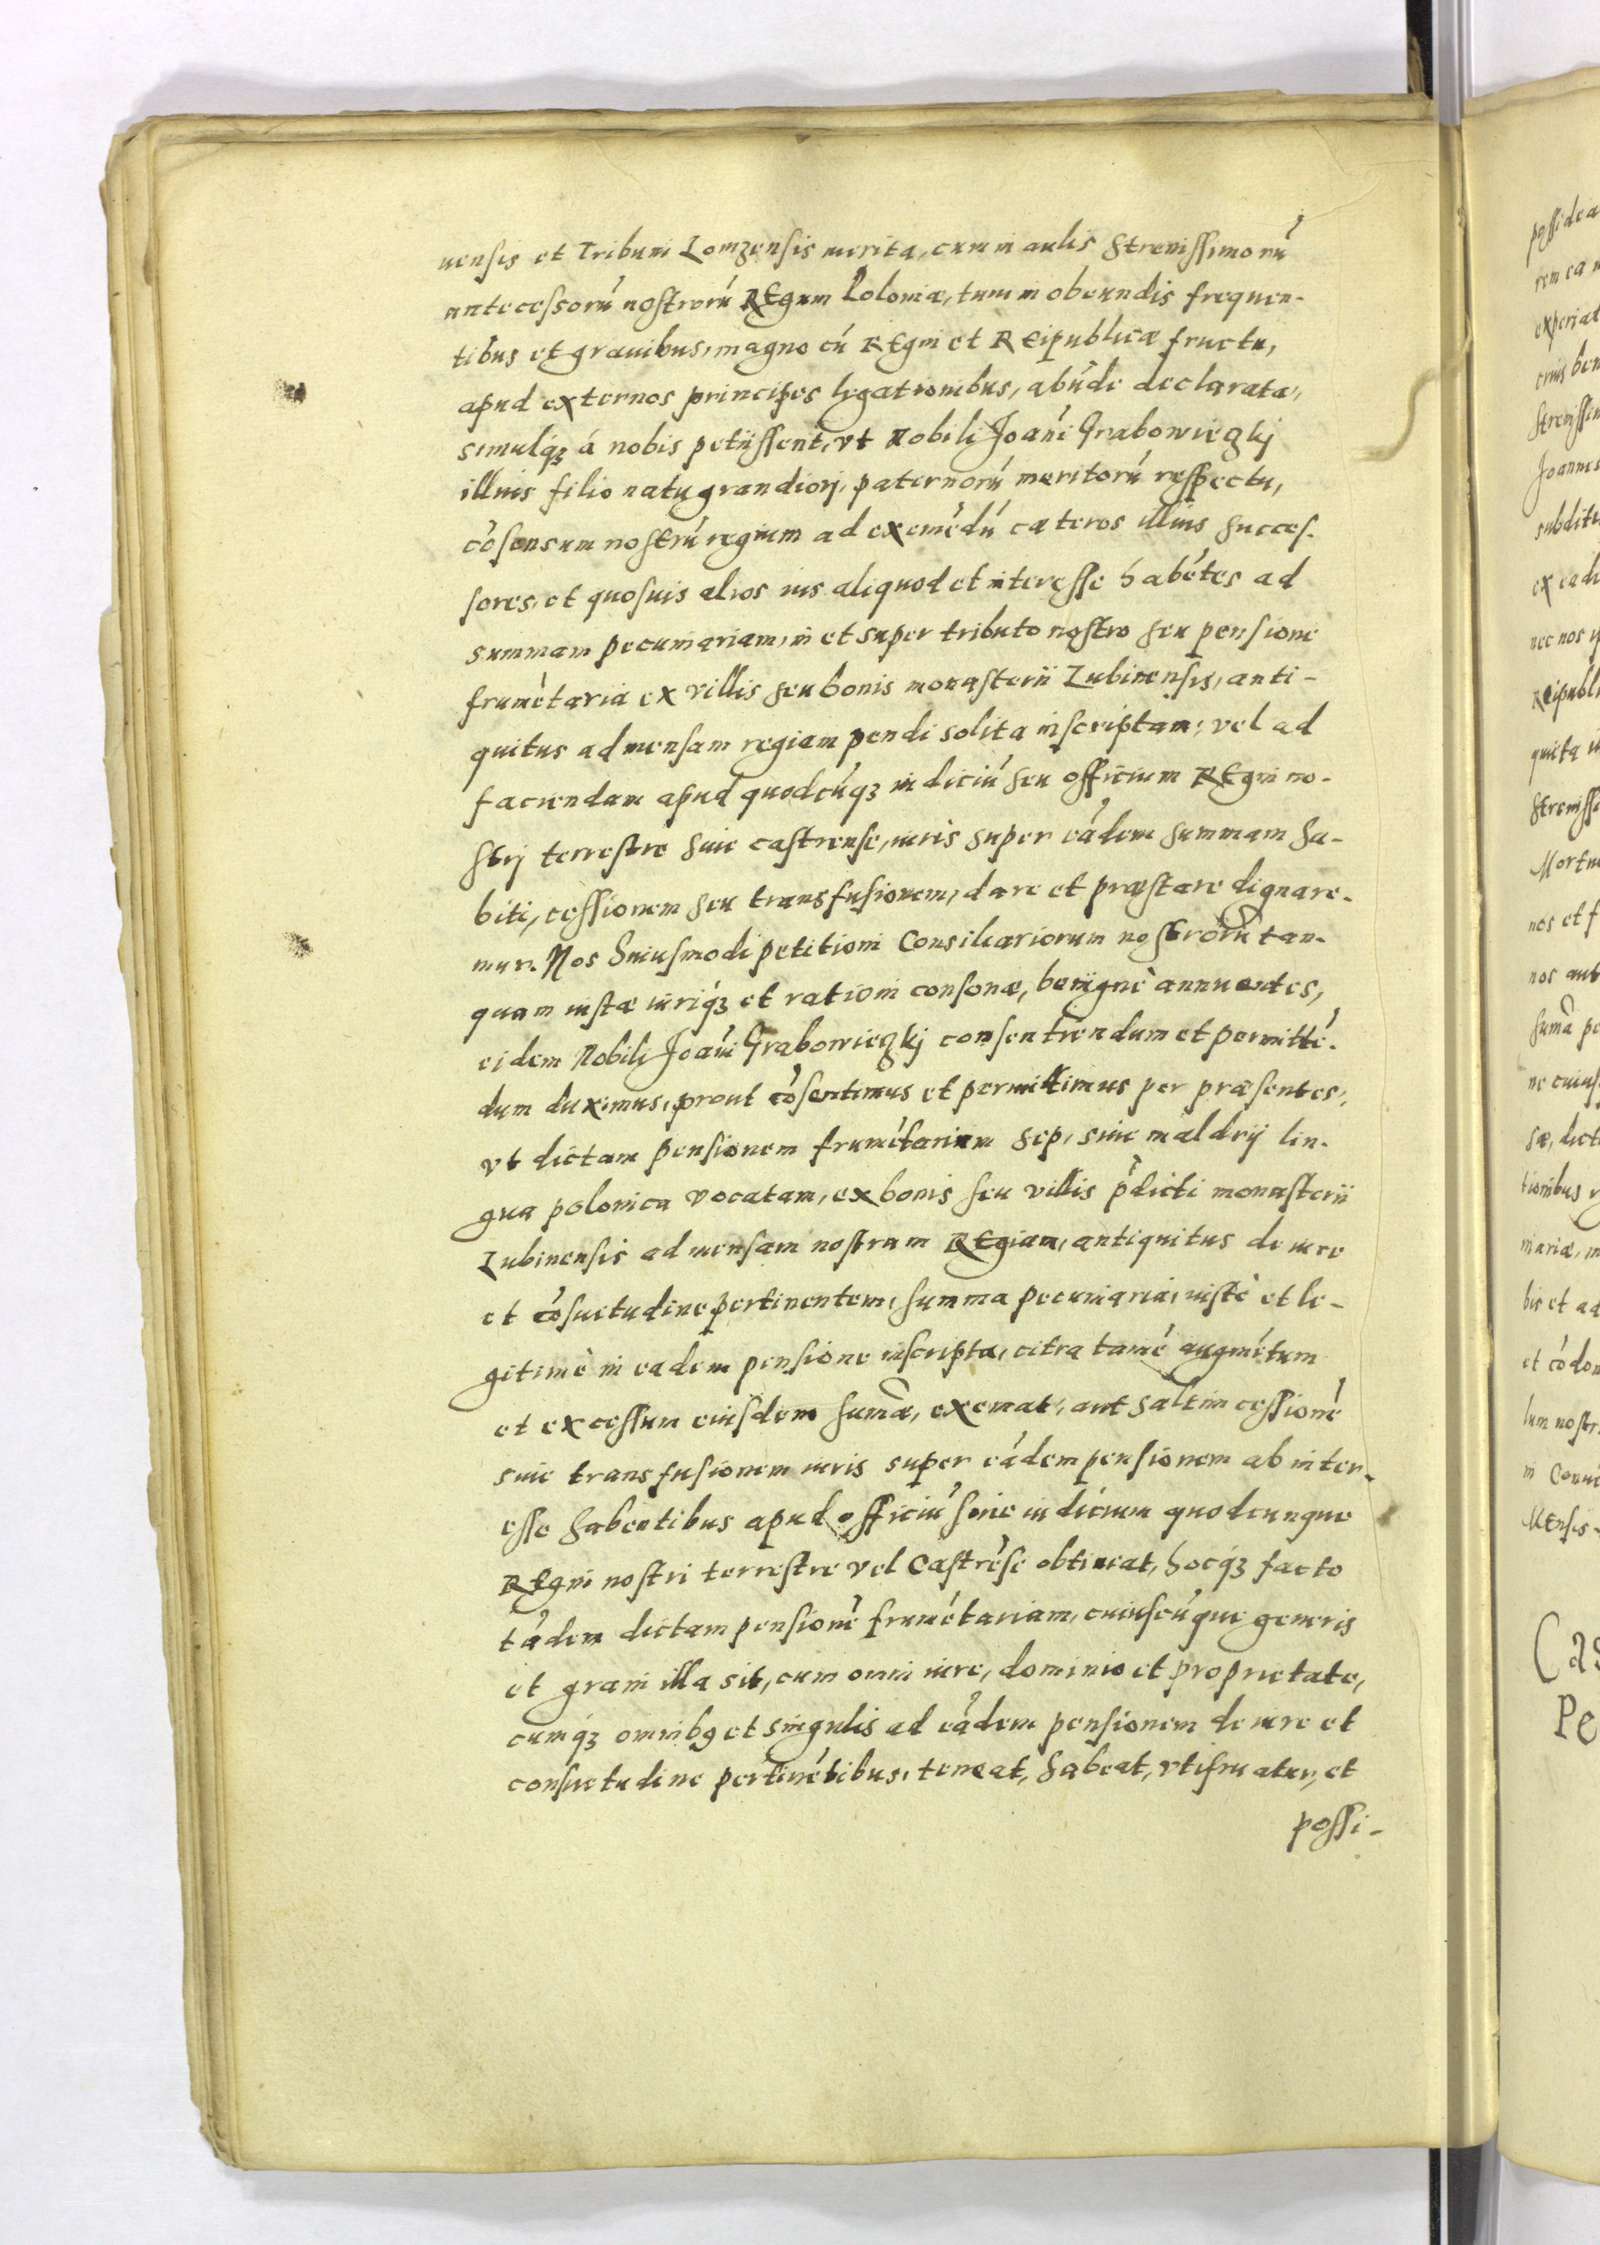 uensis et Tribuni Lomzensis merita, cum in aulis Serenissimorũ
antecessorũ nostrorũ REgum Poloniæ, tum in obeundis frequen-
tibus et grauibus, magno cũ REgni et REipublicæ fructu,
apud externos principes legationibus, abũde declarata,
simulq́3 á nobis petiissent, vt Nobili Joañi Grabowieczkj
illius filio natu grandiorj, paternorũ meritorũ respectu,
cõsensum nostrũ regium ad eximẽdũ cæteros illius succes-
sores, et quosuis alios ius aliquod et interesse habẽtes ad
summam pecuniariam, in et super tributo nostro seu pensione
frumẽtaria ex villis seu bonis monasterii Lubinensis, anti-
quitus ad mensam regiam pendi solita inscriptam, vel ad
faciendam apud quodcũq3 iudiciũ seu officium REgni no-
strj terrestre siue castrense, iuris super eãdem summam ha-
biti, cessionem seu transfusionem, dare et præstare dignare-
mur. Nos huiusmodi petitioni Consiliariorum nostrorũ tan-
quam iustæ iuriq́3 et rationi consonæ, benignè annuentes,
eidem Nobili Joãni Grabowieczkj consentiendum et permittẽ-
dum duximus, prout cõsentimus et permittimus per præsentes,
vt dictam pensionem frumẽtariam sep, siue maldrij lin-
gua polonica vocatam, ex bonis seu villis p̃dicti monasterii
Lubinensis ad mensam nostram REgiam, antiquitus de iure
et cõsuetudine pertinentem, summa pecuniaria, iustè et le-
gitimè in eadem pensione inscripta, citra tamẽ augmẽtum
et excessum eiusdem sum̃æ, eximat, aut saltim cessionẽ
siue transfusionem iuris super eãdem pensionem ab inter-
esse habentibus apud officiũ siue iudicium quodcunque
REgni nostri terrestre vel Castrẽse obtineat, hocq́3 facto
tãdem dictam pensionẽ frumẽtariam, cuiuscũque generis
et grani illa sit, cum omni iure, dominio et proprietate,
cumq́3 omnib9 et singulis ad eãdem pensionem de iure et
consuetudine pertinẽtibus, teneat, habeat, vtifruatur, et
possi-